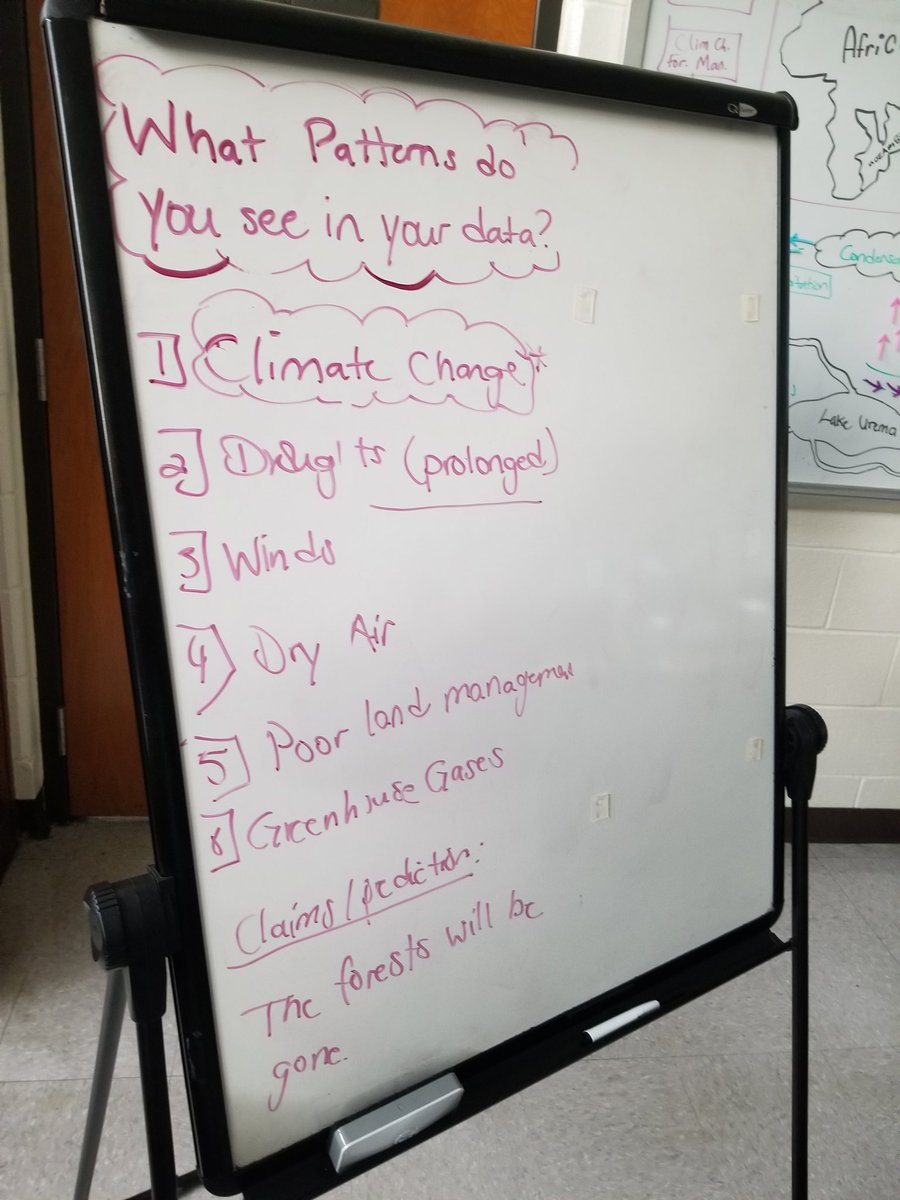 What Patterns do
you see in your data?
1] Climate Change
2] Drougts (prolonged)
3] Winds
4) Dry Air
5] Poor land management
6] Greenhouse Gases
Claims/prediction:
The forests will be
gone.
Clim Ch.
for. Man.
Afric
Condens
Lake Urema